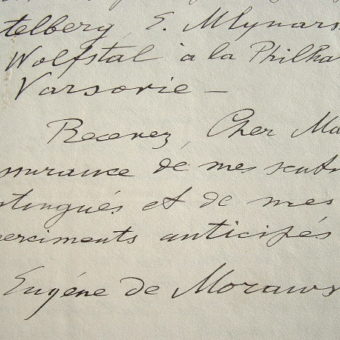 telberg, E. Mlynars
Wolfstal à la Philha
Varsovie —
Recevez, Cher Ma
ssurance de mes senti
stingués et de mes
erciments anticipés
Eugène de Moraws